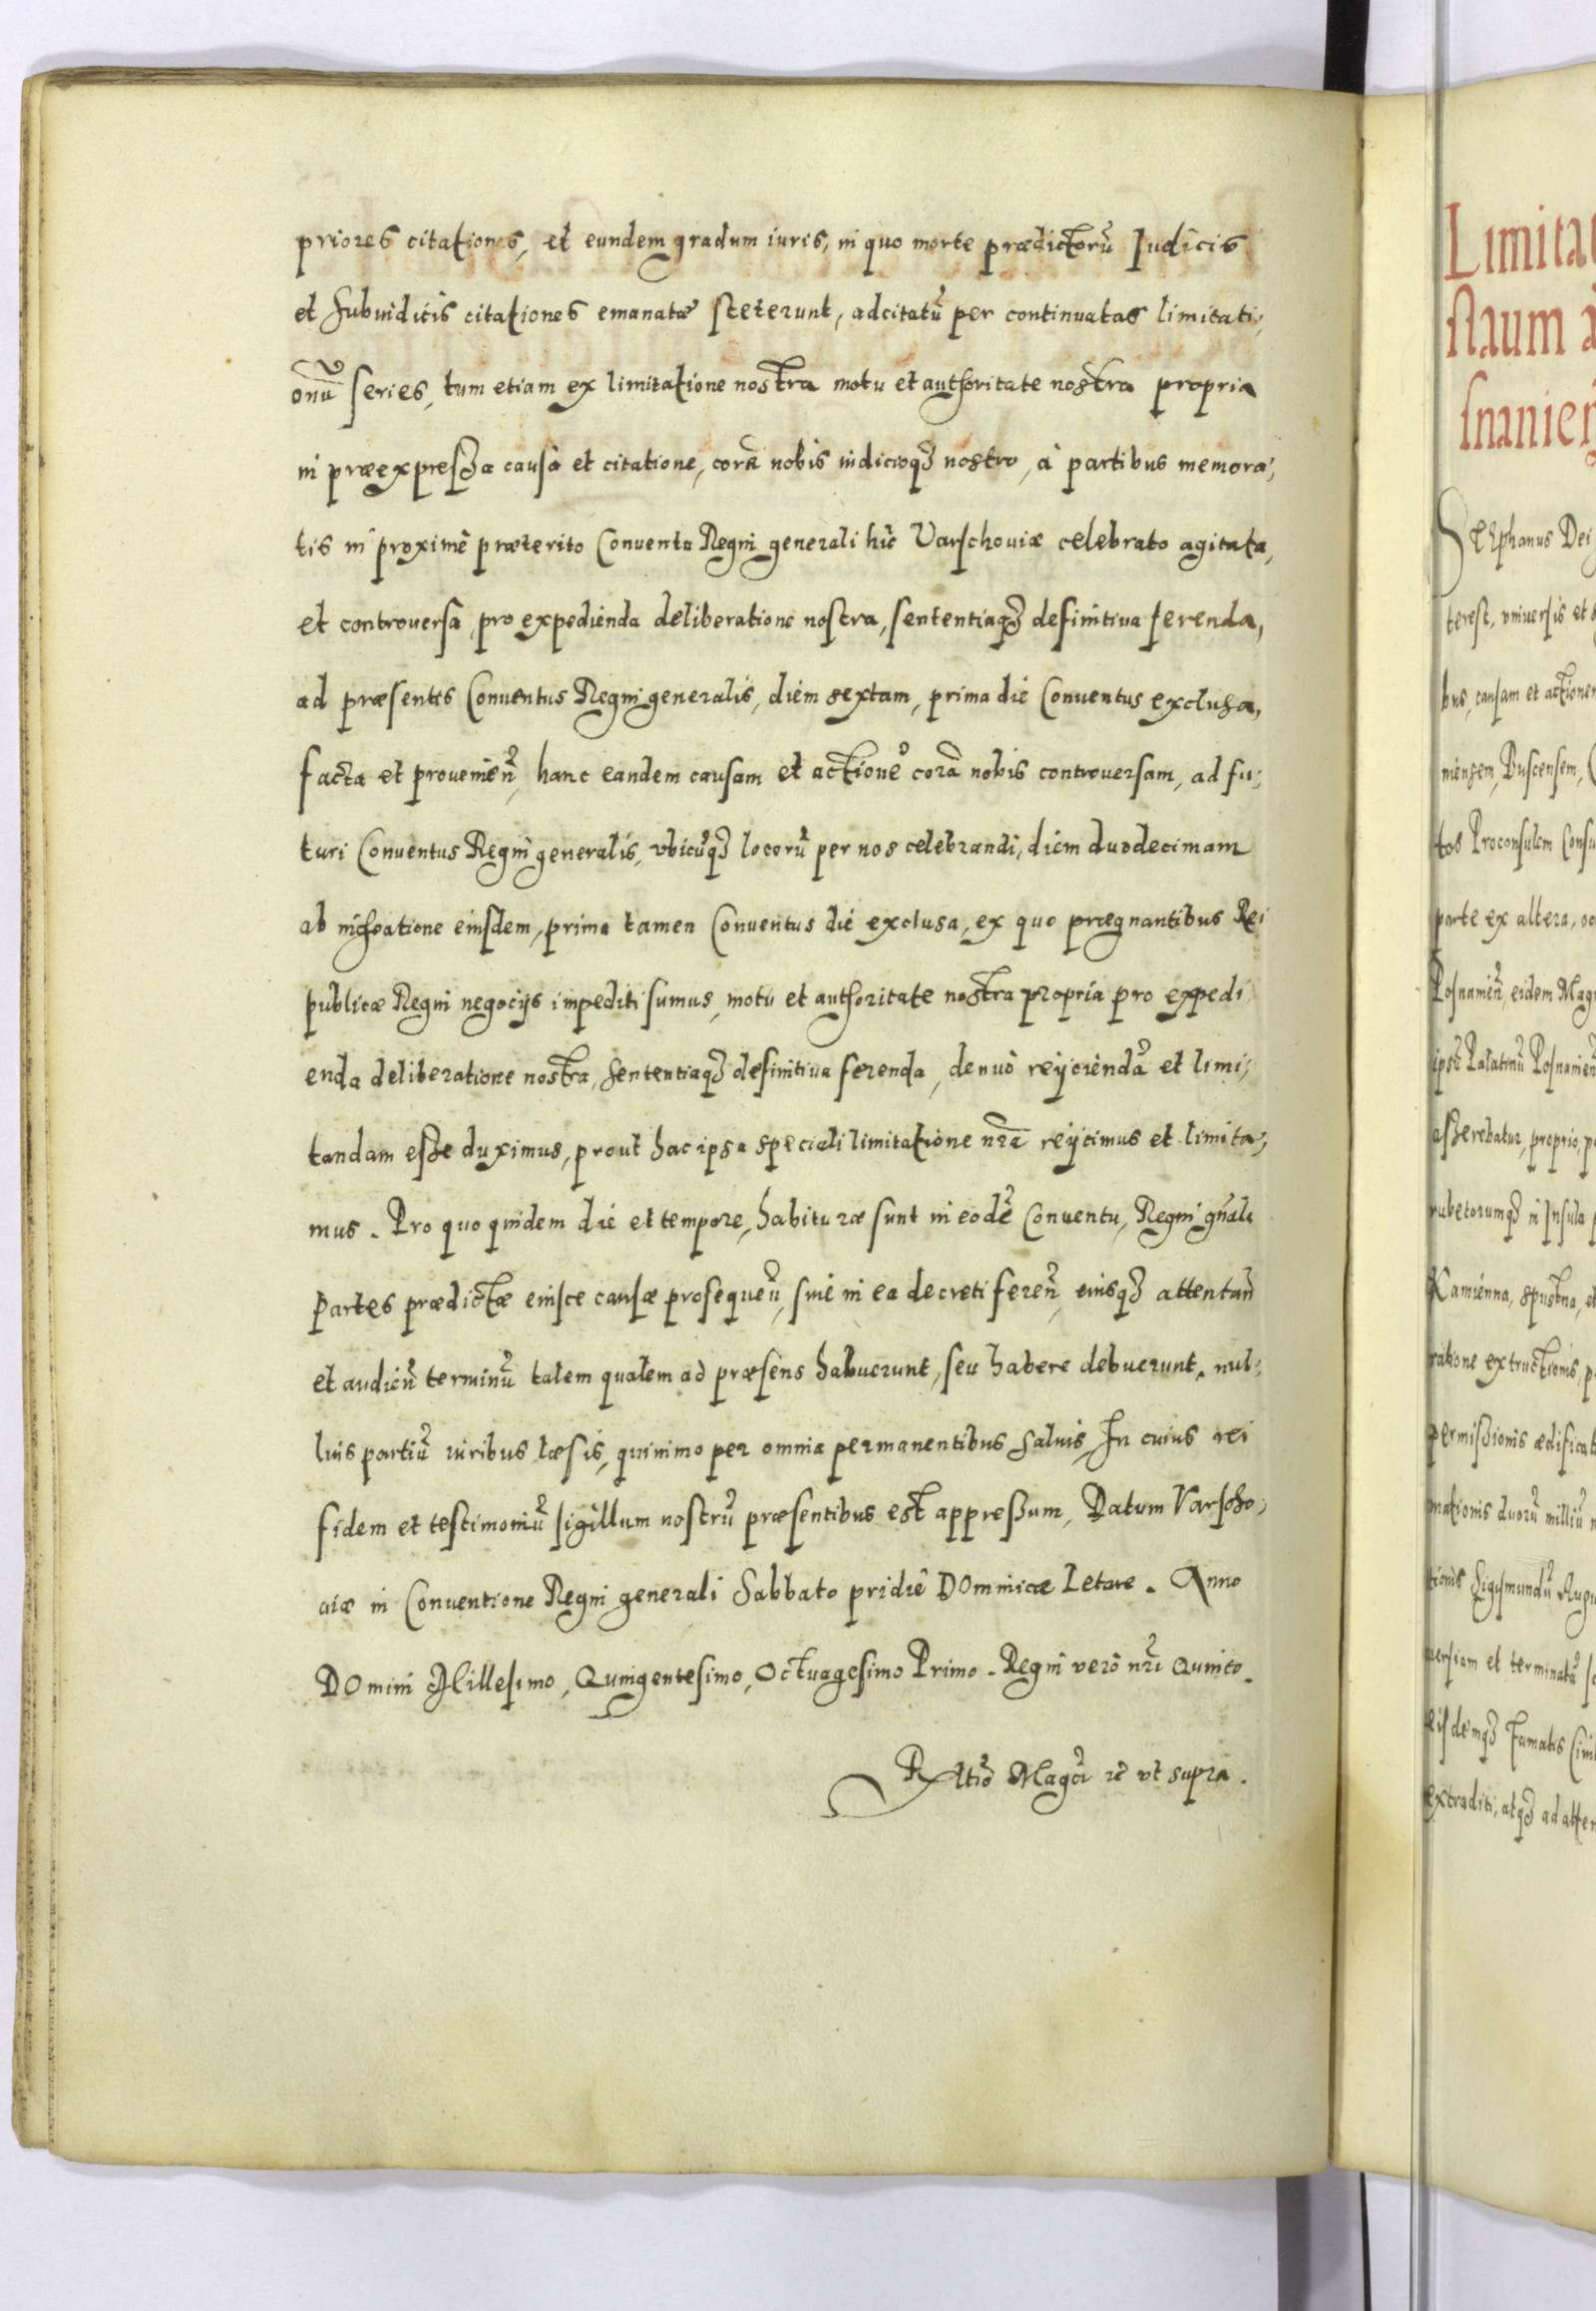 priores citationes, et eundem gradum iuris, in quo morte prædictorũ Iudicis
et Subiudicis citationes emanatæ steterunt, adcitatũ per continuatas limitati,
onũ series, tum etiam ex limitatione nostra motu et authoritate nostra propria
in præexpressa causa et citatione, corã nobis iudicioqȝ nostro, à partibus memora,
tis in proximè præterito Conuentu Regni generali hîc Varschouiæ celebrato agitata,
et controuersa, pro expedienda deliberatione nostra, sententiaqȝ definitiua ferenda,
ad præsentis Conuentus Regni generalis, diem sextam, prima die Conuentus exclusa,
facta et prouenieñ, hanc eandem causam et actionẽ corã nobis controuersam, ad fu,
turi Conuentus Regni generalis, vbicũqȝ locorũ per nos celebrandi, diem duodecimam
ab inchoatione eiusdem, prima tamen Conuentus die exclusa, ex quo prægnantibus Rei
publicæ Regni negocijs impediti sumus, motu et authoritate nostra propria pro expedi
enda deliberatione nostra, sententiaqȝ definitiua ferenda, denuò reijciendã et limi,
tandam esse duximus, prout hac ipsa speciali limitatione nrã reijcimus et limita,
mus. Pro quo quidem die et tempore, habituræ sunt in eodẽ Conuentu, Regni gñali
Partes prædictæ eiusce causæ prosequeñ, siue in ea decreti fereñ, eiusqȝ attentañ
et audieñ terminũ talem qualem ad præsens habuerunt, seu habere debuerunt, nul,
lius partiũ iuribus læsis, quinimo per omnia permanentibus saluis, In cuius rei
fidem et testimoniũ sigillum nostrũ præsentibus est appressum, Datum Varscho,
uiæ in Conuentione Regni generali Sabbato pridie DOminicæ Letare. Anno
DOmini Millesimo, Quingentesimo, Octuagesimo Primo. Regni verò nrĩ Quinto.
Rltiõ Magcı rc̃ vt supra.
Limitat
staum a
snanieñ
STEphanus Dei
terest, vniuersis et s
bus, causam et actionem
niensem, Buscensem,
tos Proconsulem Consu
parte ex altera, oc
Posnanieñ, eidem Mag
ipsũ Palatinũ Posnanieñ
asserebatur, proprio, p
rubetorumqȝ in Insula p
Kamienna, spustna, et
ratione extructionis, p
permissionis ædificat
mationis duorũ milliũ n
tionis Sigismundũ Augu
uersiam et terminatũ sc
eisdemqȝ Famatis Ciui
extraditi, atqȝ ad atten